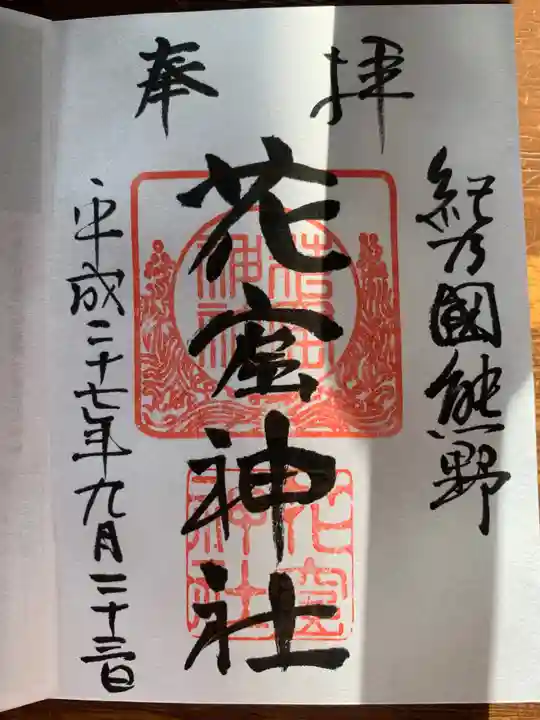 奉拝
紀乃國熊野
花窟神社
平成二十七年九月二十三日
花窟
神社